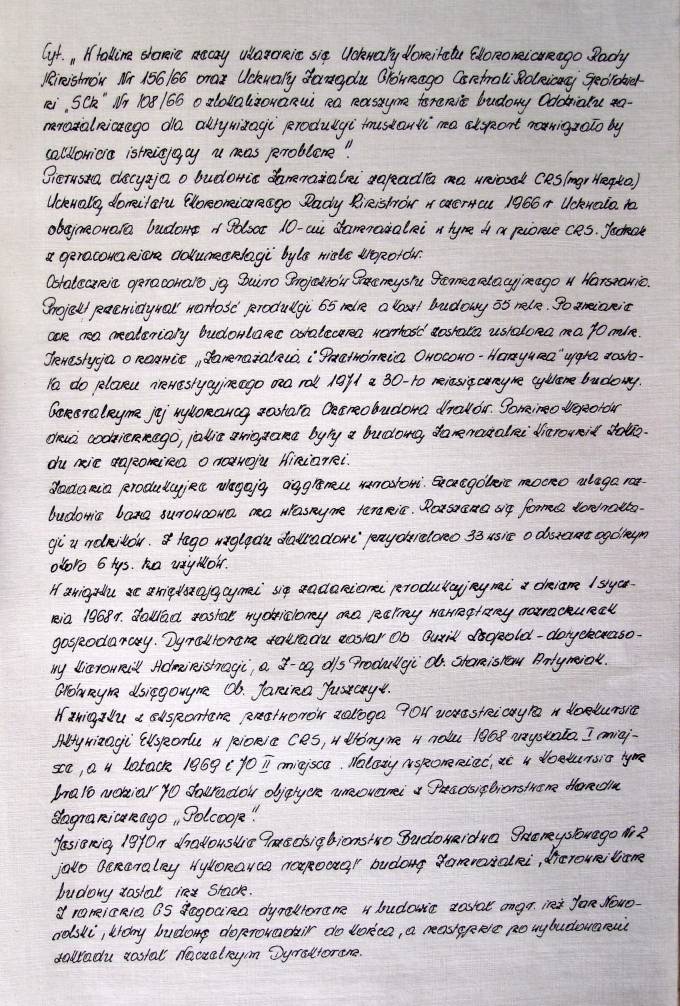 Cyt. „W takim stanie rzeczy ukazanie się Uchwały Komitetu Ekonomicznego Rady
Ministrów Nr 156/66 oraz Uchwały Zarządu Głównego Centrali Rolniczej Spółdziel-
ni „SCh" Nr 108/66 o zlokalizowaniu na naszym terenie budowy Oddziału za-
mrażalniczego dla aktywizacji produkcji truskawki na eksport rozwiązało by
całkowicie istniejący u nas problem".
Pierwsza decyzja o budowie Zamrażalni zapadła na wniosek CRS (mgr Hrążka)
Uchwałą Komitetu Ekonomicznego Rady Ministrów w czerwcu 1966 r Uchwała ta
obejmowała budowę w Polsce 10-ciu Zamrażalni w tym 4 w pionie CRS. Jednak
z opracowaniem dokumentacji było wiele kłopotów.
Ostatecznie opracowało ją Biuro Projektów Przemysłu Fermentacyjnego w Warszawie.
Projekt przewidywał wartość produkcji 65 mln a koszt budowy 55 mln. Po zmianie
cen na materiały budowlane ostateczna wartość została ustalona na 70 mln.
Inwestycja o nazwie „Zamrażalnia i Przetwórnia Owocowo-Warzywna" ujęta zosta-
ła do planu inwestycyjnego na rok 1971 z 30-to miesięcznym cyklem budowy.
Generalnym jej wykonawcą została Chemobudowa Kraków. Pomimo kłopotów
dnia codziennego, jakie związane były z budową Zamrażalni Kierownik Zakła-
du nie zapomina o rozwoju Winiarni.
Zadania produkcyjne ulegają ciągłemu wzrostowi. Szczególnie mocno ulega roz-
budowie baza surowcowa na własnym terenie. Rozszerza się forma kontrakta-
cji u rolników. Z tego względu Zakładowi przydzielono 33 wsie o obszarze ogólnym
około 6 tys. ha użytków.
W związku ze zwiększającymi się zadaniami produkcyjnymi z dniem 1 stycz-
nia 1968 r. Zakład został wydzielony na pełny wewnętrzny rozrachunek
gospodarczy. Dyrektorem zakładu został Ob Guzik Leopold - dotychczaso-
wy kierownik Administracji, a Z-cą d/s Produkcji Ob. Stanisław Antymiak.
Głównym Księgowym Ob. Janina Juszczyk.
W związku z eksportem przetworów załoga POW uczestniczyła w Konkursie
Aktywizacji Eksportu w pionie CRS, w którym w roku 1968 uzyskała I miej-
sce, a w latach 1969 i 70 II miejsce. Należy wspomnieć, że w Konkursie tym
brało udział 70 Zakładów objętych umowami z Przedsiębiorstwem Handlu
Zagranicznego „Polcoop".
Jesienią 1970 r Krakowskie Przedsiębiorstwo Budownictwa Przemysłowego Nr 2
jako Generalny Wykonawca rozpoczął budowę Zamrażalni, kierownikiem
budowy został inż Stach.
Z ramienia GS Żegocina dyrektorem w budowie został mgr. inż Jan Nowo-
rolski, który budowę doprowadził do końca, a następnie po wybudowaniu
zakładu został Naczelnym Dyrektorem.